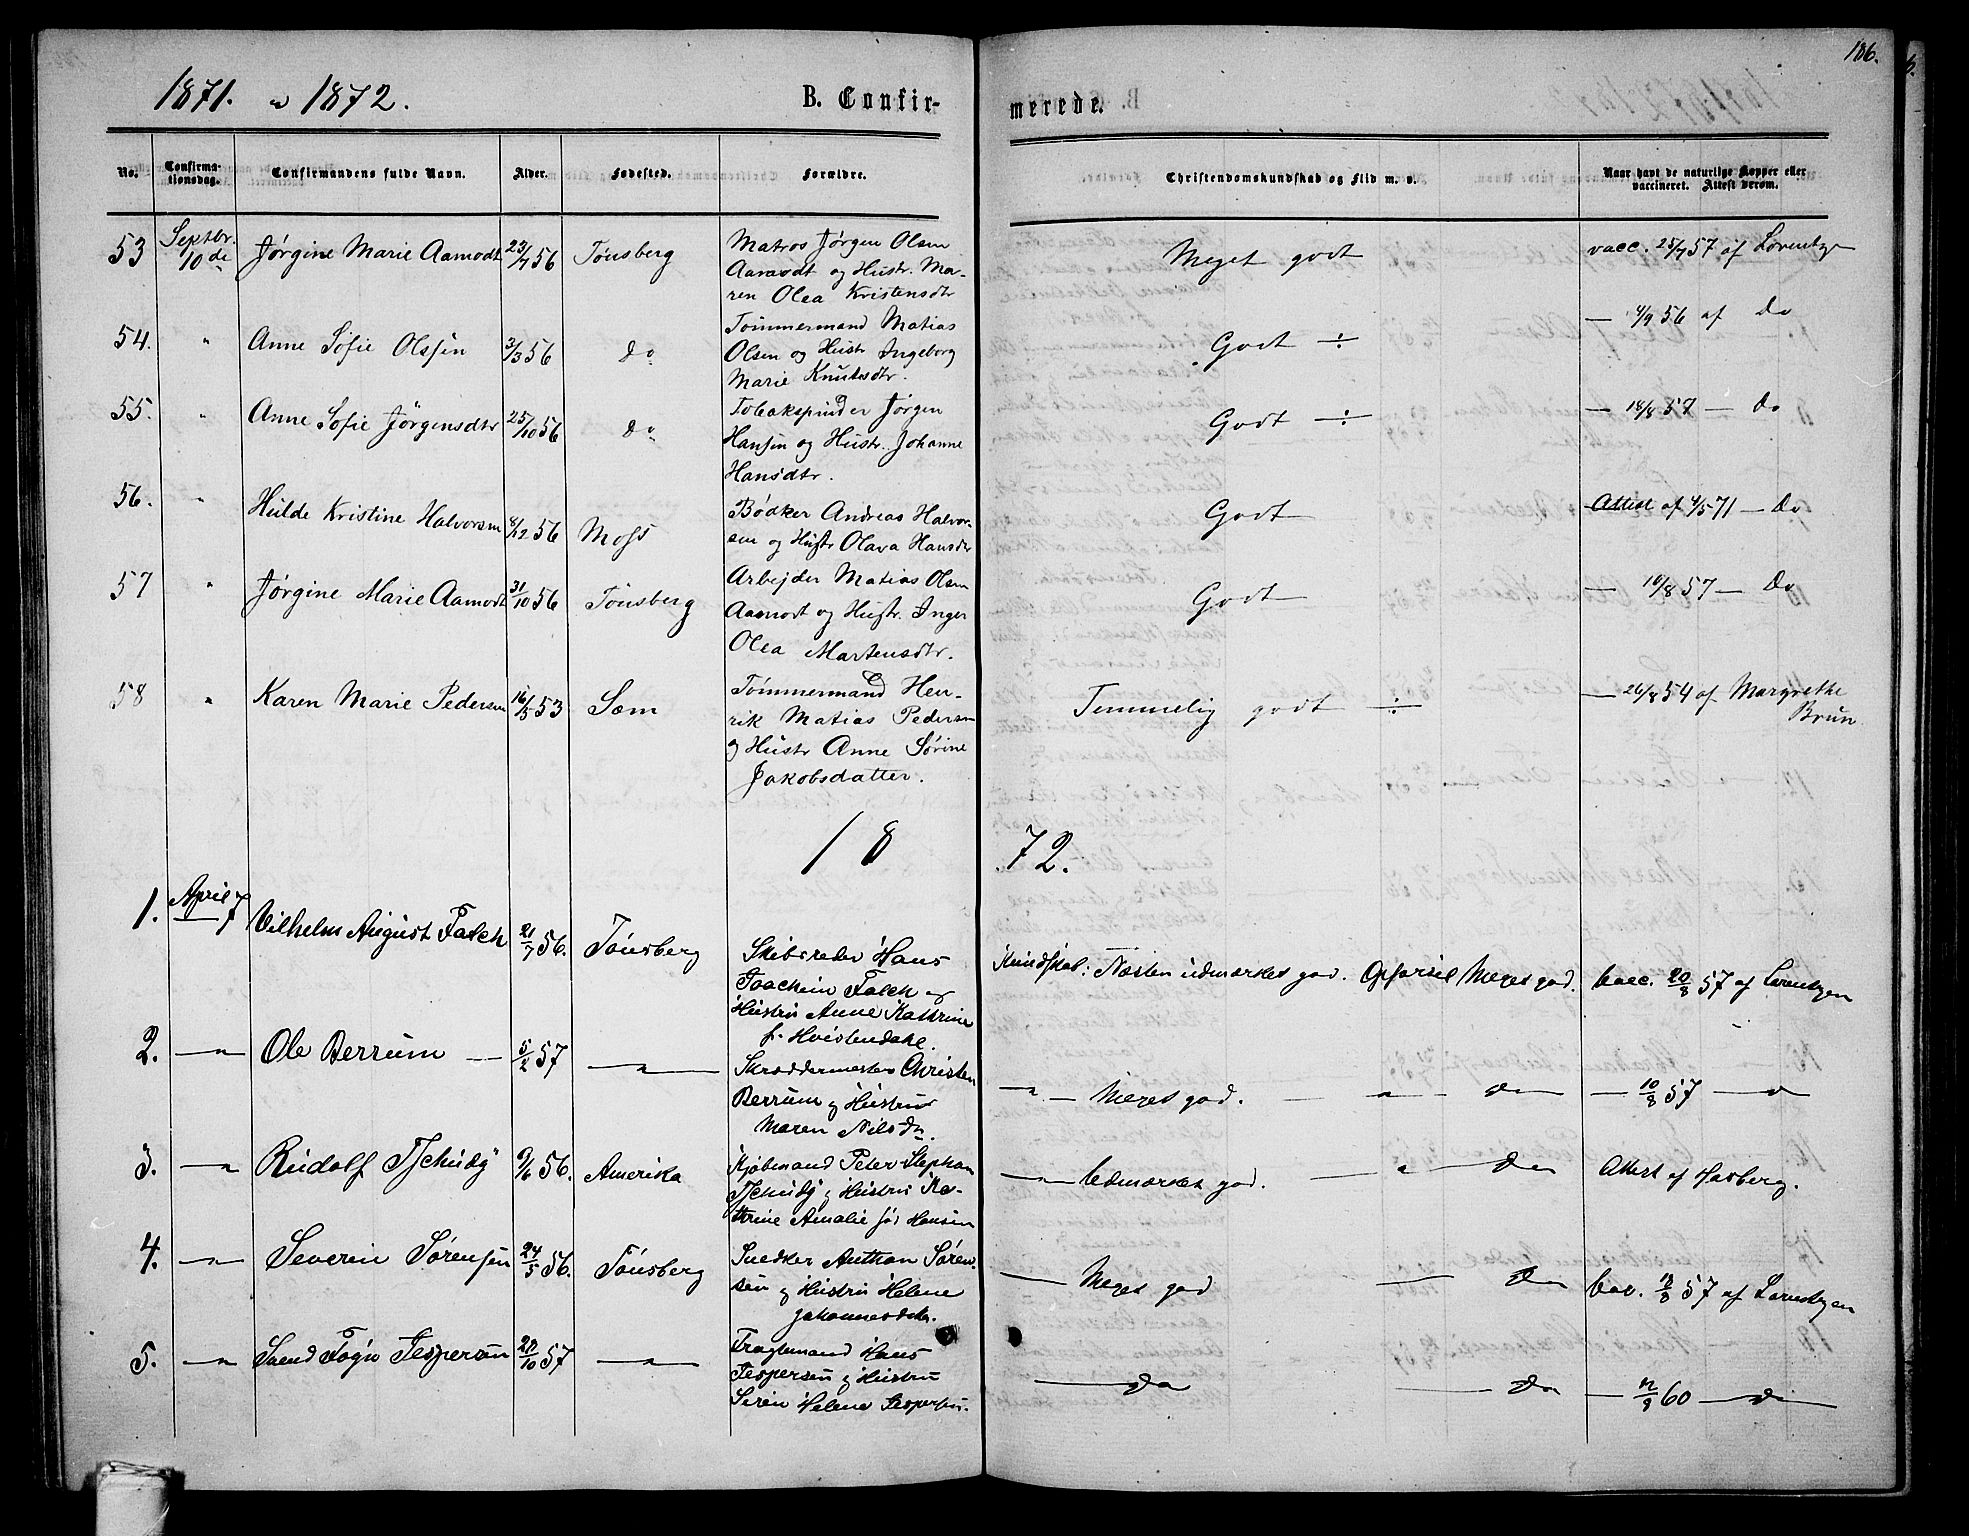 186.
1871. " 1872. B. Confir- merede.
No. Confirma- tionsdag. Confirmandens fulde Navn. Alder. Fødested. Forældre. Christendomskundskab og Flid m. v. Naar havt de naturlige Kopper eller vaccineret. Attest derom.
53 Septbr. 10de Jørgine Marie Aamodt 23/7 56 Tönsberg Matros Jørgen Olsen Meget godt vacc. 25/7 57 af Lorentzen
Aamodt og Hustr. Ma-
ren Olea Kristensdtr
54. " Anne Sofie Olssen 31/3 56 Do Tömmermand Matias Godt ÷ — 4/9 56 af Do
Olsen og Hustr Ingeborg
Marie Knutsdtr.
55. " Anne Sofie Jörgensdtr 25/10 56 Do Tobakspinder Jörgen Godt ÷ — 18/8 57 — Do
Hansen og Hustr. Johanne
Hansdtr.
56. " Hulde Kristine Halvorsen 8/12 56 Moss Bödker Andreas Halvor- Godt Attest af 4/5 71 — Do
sen og Hustr Olava Hansdtr
57 " Jørgine Marie Aamodt 31/10 56 Tönsberg Arbejder Matias Olsen Godt — 10/8 57 — Do
Aamodt og Hustr. Inger
Olea Martensdtr.
58 " Karen Marie Pedersen 16/5 53 Sem Tömmermand Hen- Temmelig godt ÷ — 26/8 54 af Margrethe Brun
rik Matias Pedersen
og Hustr Anne Sörine
Jakobsdatter.
18 72.
1. April 7 Vilhelm August Falch 21/7 56. Tönsberg Skibsreder Hans Kundskab: Næsten udmærket god. Opførsel Meget god. Vacc. 20/8 57 af Lorentzen
Joachim Falch og
Hustru Anne Kathrine
f. Hvistendahl.
2. — " Ole Berrum — 5/2 57 — " — Skræddermester Christen — " — Meget god. — " — Do — 10/8 57 — "
Berrum og Hustru
Maren Nilsdr.
3. — " Rudolf Tschudy 9/6 56. Amerika Kjøbmand Peter Stephan — " — Udmærket god. — " — Do Attest af Hasberg.
Tschudy og Hustru Ka-
thrine Amalie fød Hansen
4. — " Severin Sørensen 24/5 56. Tönsberg Snedker Anthon Søren- — Meget god — Do Vac. 18/8 57 af Lorentzen
sen og Hustru Helene
Johannesdtr.
5. — " Svend Fogn Jespersen 20/10 57 — " — Fragtemand Hans — Do — Do — 12/9 60 — Do
Jespersen og Hustru
Seren Helene Jespersen.